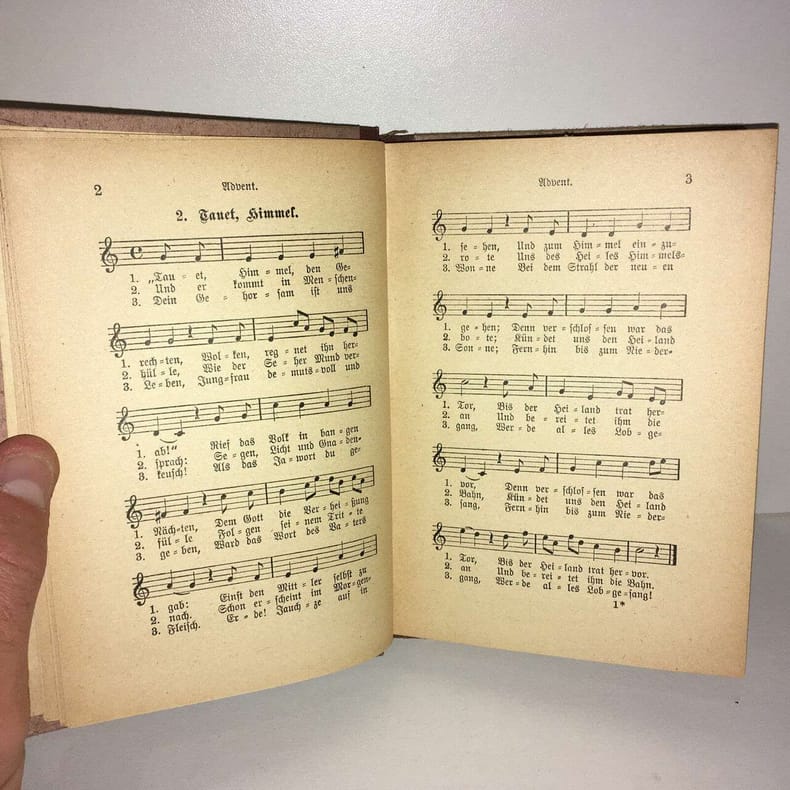 2
Advent.
2. Tauet, Himmel.
1. „Tau = et, Him = mel, den Ge=
2. Und er kommt in Men = schen=
3. Dein Ge = hor = sam ist uns
1. rech = ten, Wol = ken, reg = net ihn her=
2. hül = le, Wie der Se = her Mund ver=
3. Le = ben, Jung = frau de = muts = voll und
1. ab!“ Rief das Volk in ban = gen
2. sprach: Se = gen, Licht und Gna = den=
3. keusch! Als das Ja = wort du ge=
1. Näch = ten, Dem Gott die Ver = hei = ßung
2. fül = le Fol = gen sei = nem Trit = te
3. ge = ben, Ward das Wort des Va = ters
1. gab: Einst den Mitt = ler selbst zu
2. nach. Schon er = scheint im Mor = gen=
3. Fleisch. Er = de! Jauch = ze auf in
Advent.
3
1. se = hen, Und zum Him = mel ein = zu=
2. ro = te Uns des Hei = les Him = mels=
3. Won = ne Bei dem Strahl der neu = en
1. ge = hen; Denn ver = schlos = sen war das
2. bo = te; Kün = det uns den Hei = land
3. Son = ne; Fern = hin bis zum Nie = der=
1. Tor, Bis der Hei = land trat her=
2. an Und be = rei = tet ihm die
3. gang, Wer = de al = les Lob = ge=
1. vor, Denn ver = schlos = sen war das
2. Bahn, Kün = det uns den Hei = land
3. sang, Fern = hin bis zum Nie = der=
1. Tor, Bis der Hei = land trat her = vor.
2. an Und be = rei = tet ihm die Bahn.
3. gang, Wer = de al = les Lob = ge = sang!
1*